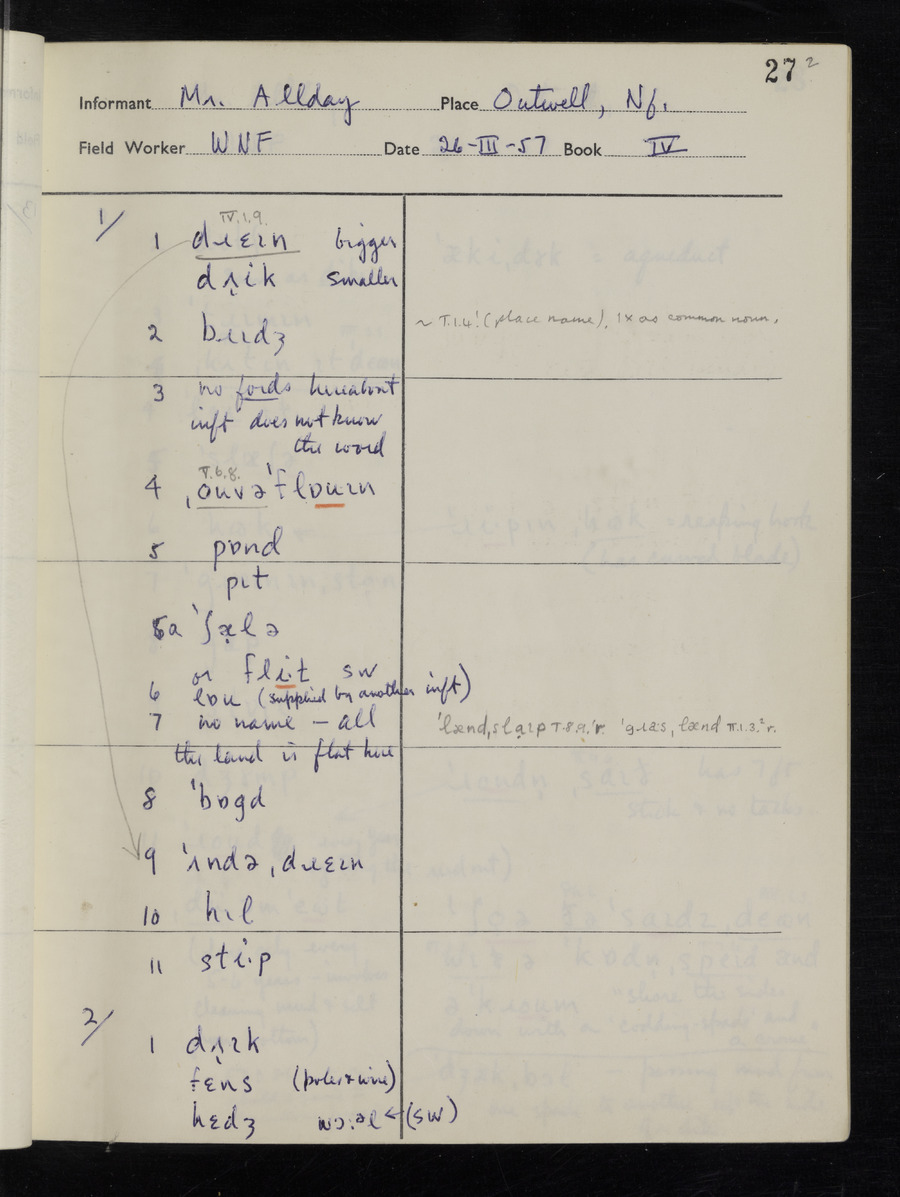 27 2
Informant Mr. Allday Place Outwell, Nf.
Field Worker WNF Date 26-III-57 Book IV
1/
IV.1.9.
1 dɹɛɪn bigger
dɹ̣ik smaller
2 bɹɪdʒ ~ T.1.4! (place name), 1x as common noun.
3 no fords hereabout
inft does not know
the word
V.6.8.
4 ˌouvəˈflouɪn
5 pɒnd
pɪt
5a ˈʃælə
or fli:t SW
6 lou (supplied by another inft)
7 no name – all ˈlænd,slaɪp T.8.9.ˈr. ˈgɹas, lænd II.1.3.²r.
the land is flat here
8 ˈbɒgd
9 ˈʌndə,dɹɛɪn
10 hɪl
11 sti:p
2/
1 dɹ̣ɪk
fɛns (poles & wire)
hɛdʒ wɔ:əl ← (SW)